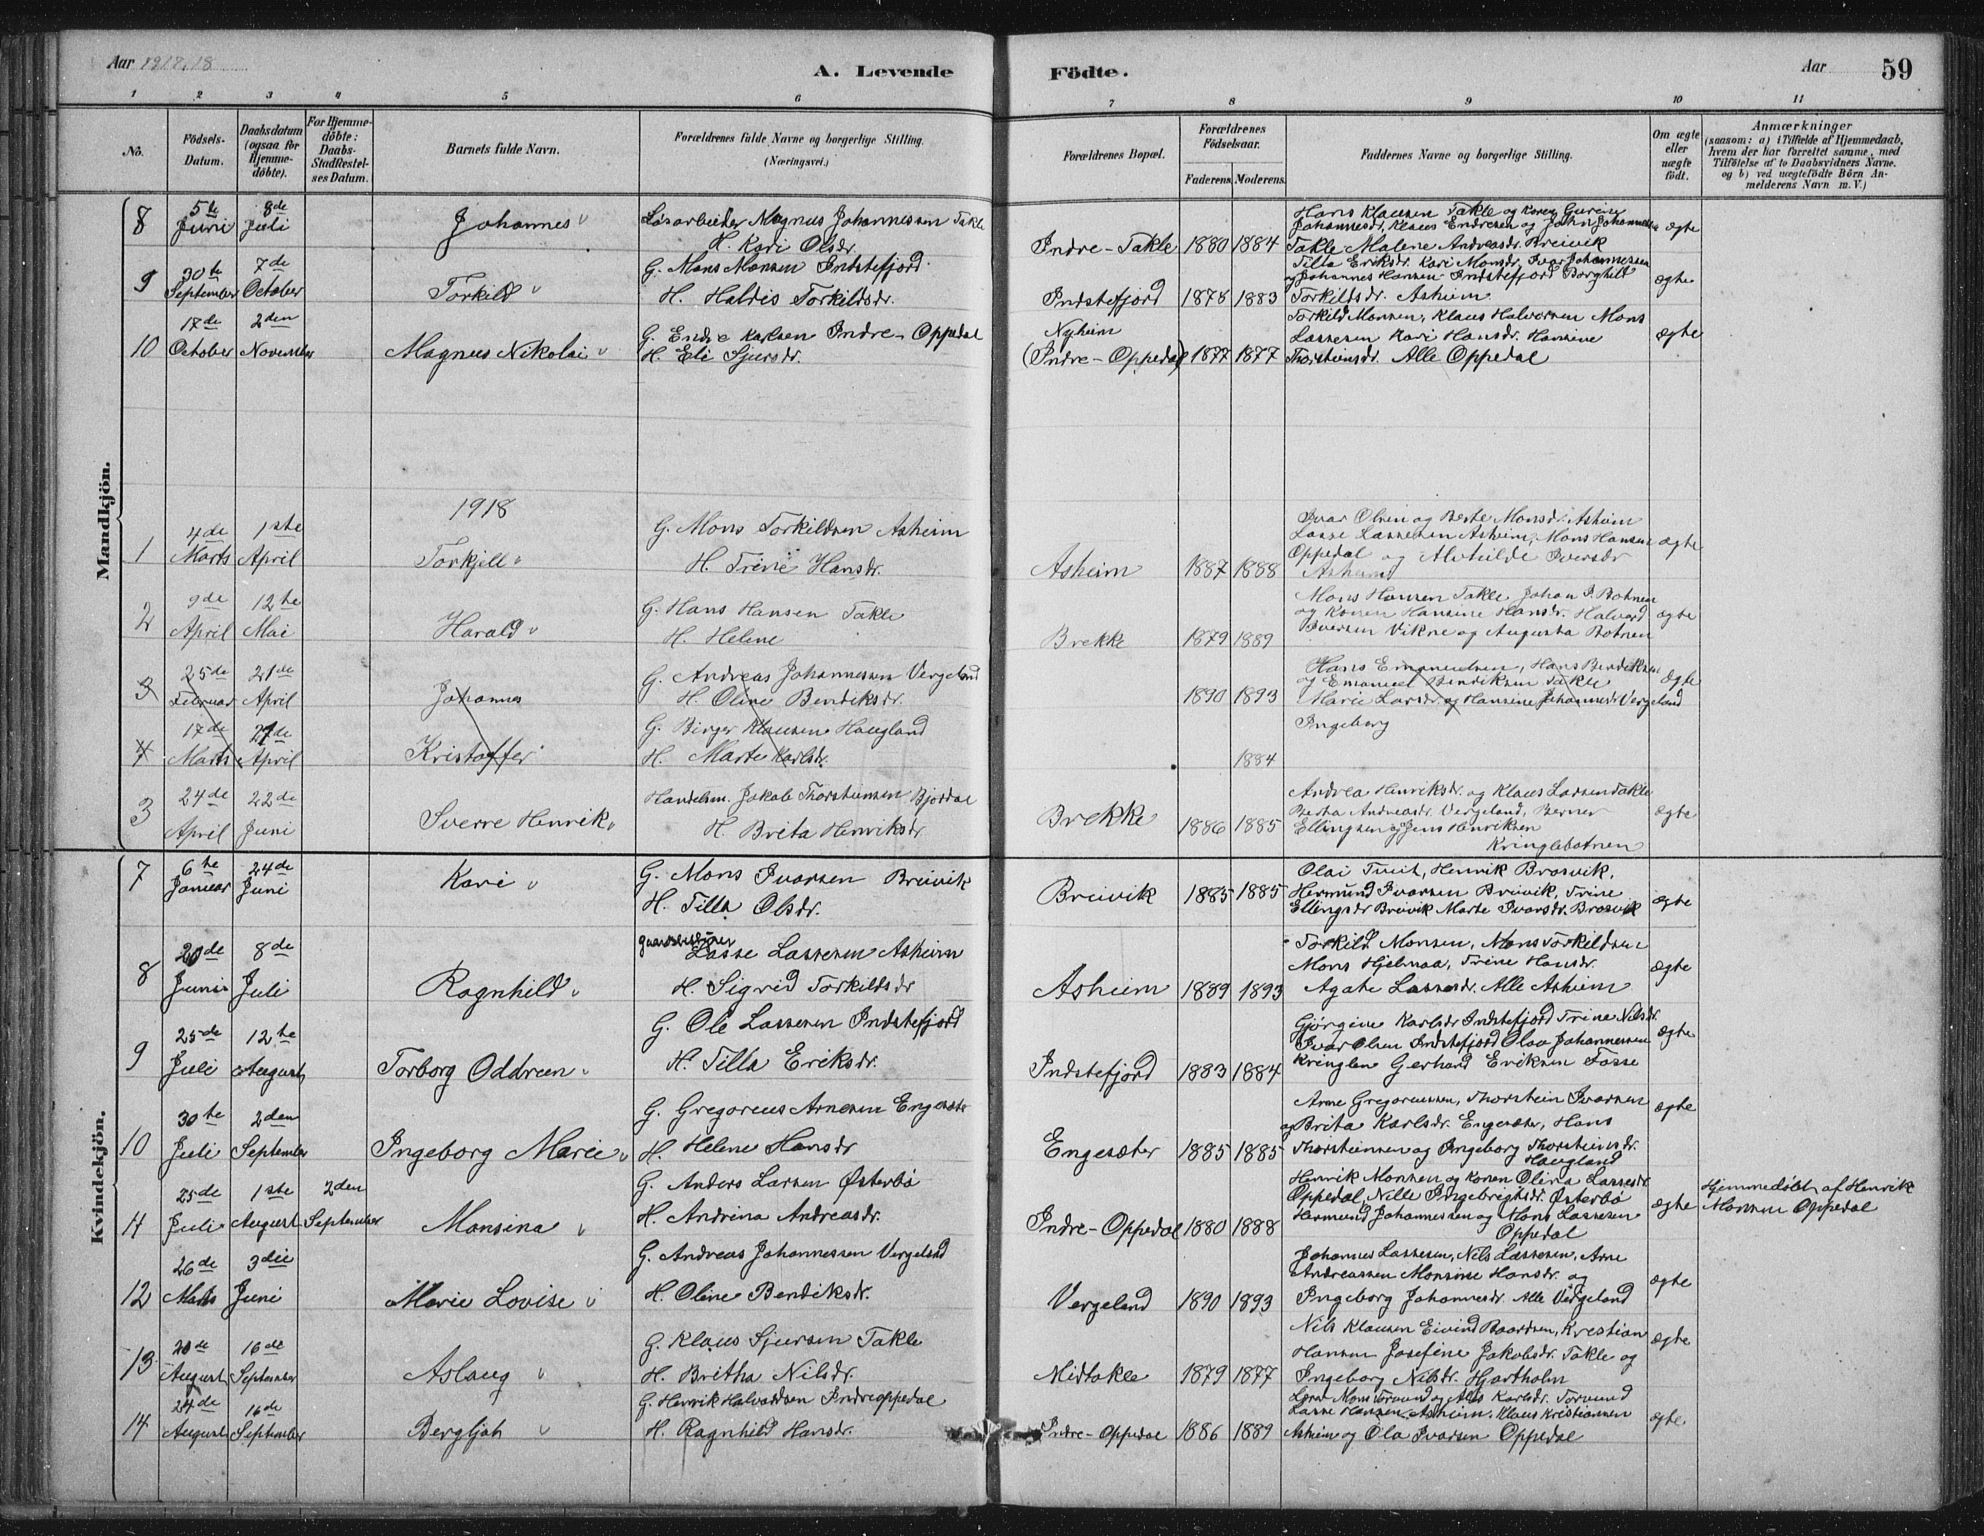 Aar 1917.18
A. Levende
Födte.
Aar
59
1 2 3 4 5 6 7 8 9 10 11
No.
Födsels-Datum.
Daabsdatum (ogsaa for Hjemme-döbte).
For Hjemme-döbte: Daabs-Stadfestel-ses Datum.
Barnets fulde Navn.
Forældrenes fulde Navne og borgerlige Stilling.
(Næringsvei.)
Forældrenes Bopæl.
Forældrenes Födselsaar.
Faderens. Moderens.
Faddernes Navne og borgerlige Stilling.
Om ægte eller uægte födt.
Anmærkninger
(saasom: a) i Tilfælde af Hjemmedaab,
hvem der har forrettet samme, med
Tilföielse af to Daabsvidners Navne.
og b) ved uægtefödte Börn An-
melderens Navn m. V.)
Mandkjön.
8 5te Juni 8de Juli Johannes
Løsarbeider Magnus Johannessen Takle
H. Kari Olsdr.
Indre-Takle 1880 1884
Hans Klausen Takle og Konen Gurine
Johannesdr, Klaus Endresen og John Johannessen
Takle. Malene Andreasdr. Breivik
ægte
9 30te September 7de October Torkild
G. Mons Monsen Indstefjord
H. Haldis Torkildsdr.
Indstefjord 1878 1883
Tilla Eriksdr. Kari Monsdr, Ivar Johannessen
og Johannes Hansen Indstefjord Borghild
Torkildsdr. Asheim
ægte
10 17de October 2den November Magnus Nikolai
G. Endre Karlsen Indre-Oppedal
H. Eli Sjursdr.
Nyheim
(Indre-Oppedal) 1877 1877
Torkild Monsen, Klaus Halvorsen Mons
Lassesen Kari Hansdr. Hansine
Thorsteinsdr. Alle Oppedal
ægte
1918
1 4de Marts 1ste April Torkjell
G. Mons Torkildsen Asheim
H. Trine Hansdr.
Asheim 1887 1888
Ivar Olsen og Berte Monsdr. Asheim
Lasse Lassesen Asheim, Mons Hansen
Oppedal og Alvhilde Iversdr
Asheim
ægte
2 9de April 12te Mai Harald
G. Hans Hansen Takle
H. Helene
Brekke 1879 1889
Mons Hansen Takle Johan P. Botnen
og Konen Hansine Hansdr. Halvard
Iversen Vikne og Augusta Botnen
ægte
3 25de Februar 21de April Johannes
G. Andreas Johannessen Vergeland
H. Oline Bendiksdr.
1890 1893
Hans Emanuelsen, Hans Bendiksen
og Emanuel Bendiksen Takle
Marie Larsdr. og Hansine Johannesdr. Vergeland
ægte
4 17de Marts 21de April Kristoffer
G. Birger Klausen Haugland
H. Marte Karlsdr.
1884
Ingeborg
3 24de April 22de Juni Sverre Henrik
Handelsm. Jakob Thorsteinsen Bjordal
H. Brita Henriksdr.
Brekke 1886 1885
Andrea Henriksdr. og Klaus Larsen Takle
Berta Andreasdr. Vergeland, Berner
Ellingsen og Jens Henriksen
Kringlebotnen
ægte
Kvindekjön.
7 6te Januar 24de Juni Kari
G. Mons Ivarsen Breivik
H. Tilla Olsdr.
Breivik 1885 1885
Olai Tveit, Henrik Brosvik,
Hermund Ivarsen Breivik, Trine
Ellingsdr Breivik Marte Ivarsdr. Brosvik
ægte
8 20de Juni 8de Juli Ragnhild
gaardbruger
Lasse Lassesen Asheim
H. Sigrid Torkildsdr
Asheim 1889 1893
Torkild Monsen, Mons Torkildsen
Mons Hjelmaa, Trine Hansdr.
Agate Lassesdr. Alle Asheim
ægte
9 25de Juli 12te August Torborg Oddrun
G. Ole Lassesen Indstefjord
H. Tilla Eriksdr.
Indstefjord 1883 1884
Gjørgine Karlsdr Indstefjord Trine Nilsdr.
Ivar Olsen Indstefjord Olav Johannessen
Kringlen Gerhard Eriksen Fosse
ægte
10 30te Juli 2den September Ingeborg Marie
G. Gregoreus Arnesen Engesæter
H. Helene Hansdr
Engesæter 1885 1885
Arne Gregoreussen, Thorstein Ivarsen
og Brita Karlsdr. Engesæter, Hans
Thorsteinsen og Ingeborg Thorsteinsdr.
Haugland
ægte
11 25de Juli 1ste August 2den September Monsina
G. Anders Larsen Østerbø
H. Andrina Andreasdr.
Indre-Oppedal 1880 1888
Henrik Monsen og Konen Olina Lassesdr.
Oppedal, Nille Ingebrigtsdr. Østerbø
Hermund Johannessen og Mons Lassesen
Oppedal
ægte
Hjemmedøbt af Henrik
Monsen Oppedal
12 26de Marts 3die Juni Marie Lovise
G. Andreas Johannessen Vergeland
H. Oline Bendiksdr.
Vergeland 1890 1893
Johannes Lassesen, Nils Lassesen, Arne
Andreassen Monsine Hansdr. og
Ingeborg Johannesdr. Alle Vergeland
ægte
13 20de August 16de September Aslaug
G. Klaus Sjursen Takle
H. Britha Nilsdr.
Midtakle 1879 1877
Nils Klausen Eivind Baardsen, Kristian
Hansen Josefine Jakobsdr. Takle og
Ingeborg Nilsdr. Hjortholm
ægte
14 24de August 16de September Bergljot
G. Henrik Halvardsen Indreoppedal
H. Ragnhild Hansdr.
Indre-Oppedal 1886 1889
Mons Torvund og Karlsdr. Torvund
Lasse Hansen Asheim. Klaus Kristiansen
Asheim og Ola Ivarsen Oppedal
ægte